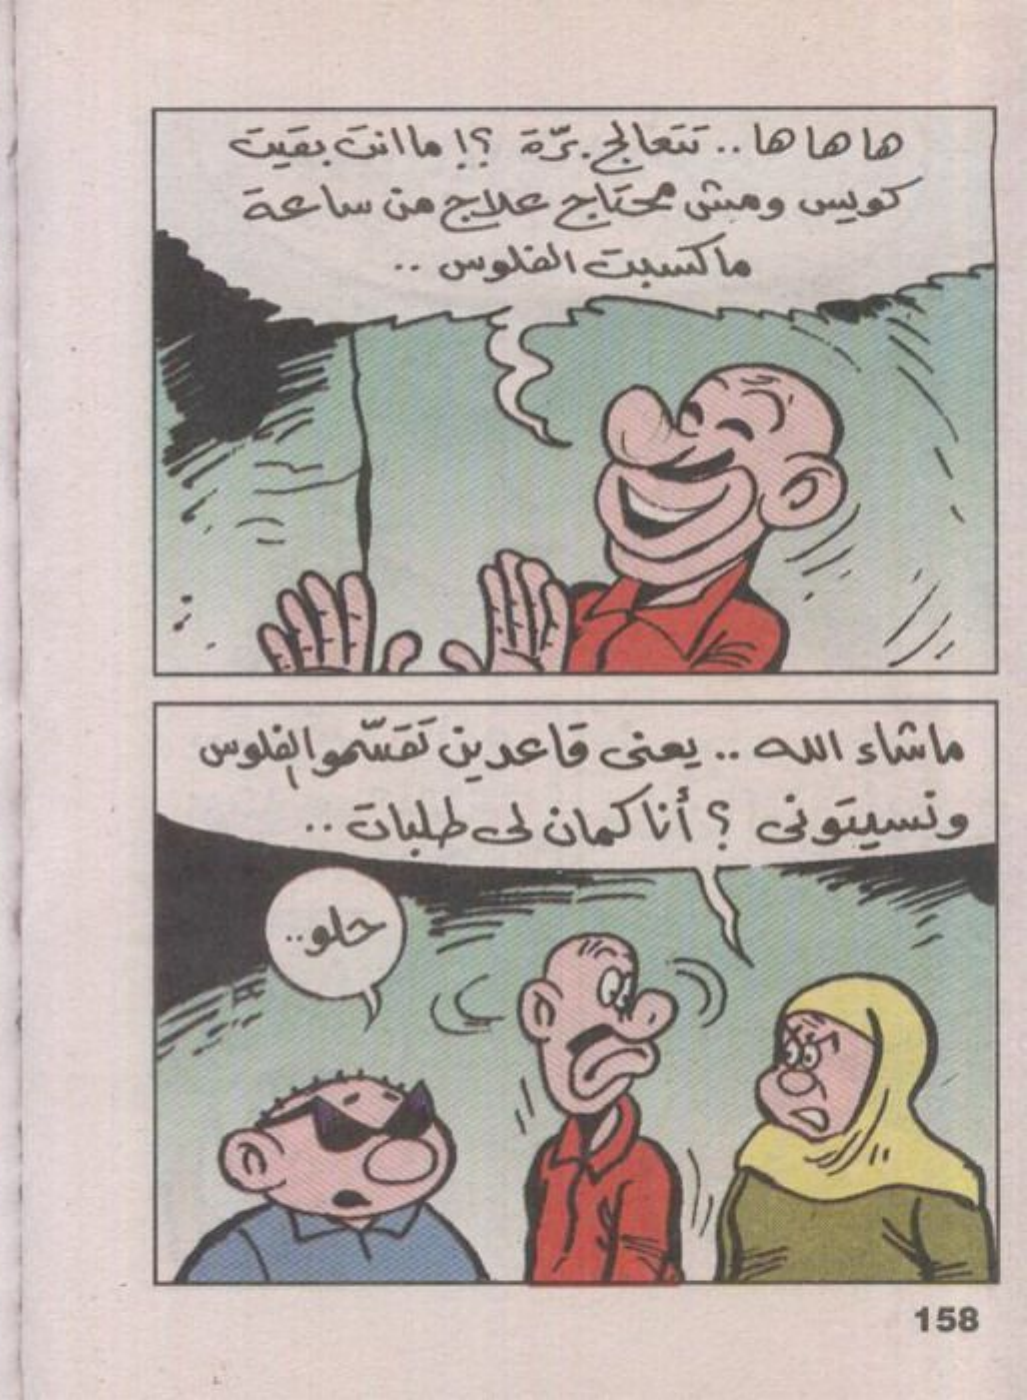 ها ها ها .. تتعالج برّة ؟! ما انت بقيت
كويس ومش محتاج علاج من ساعة
ما كسبت الفلوس ..
ما شاء الله .. يعنى قاعدين تقسّموا الفلوس
ونسيتونى ؟ أنا كمان لى طلبات ..
حلو ..
158